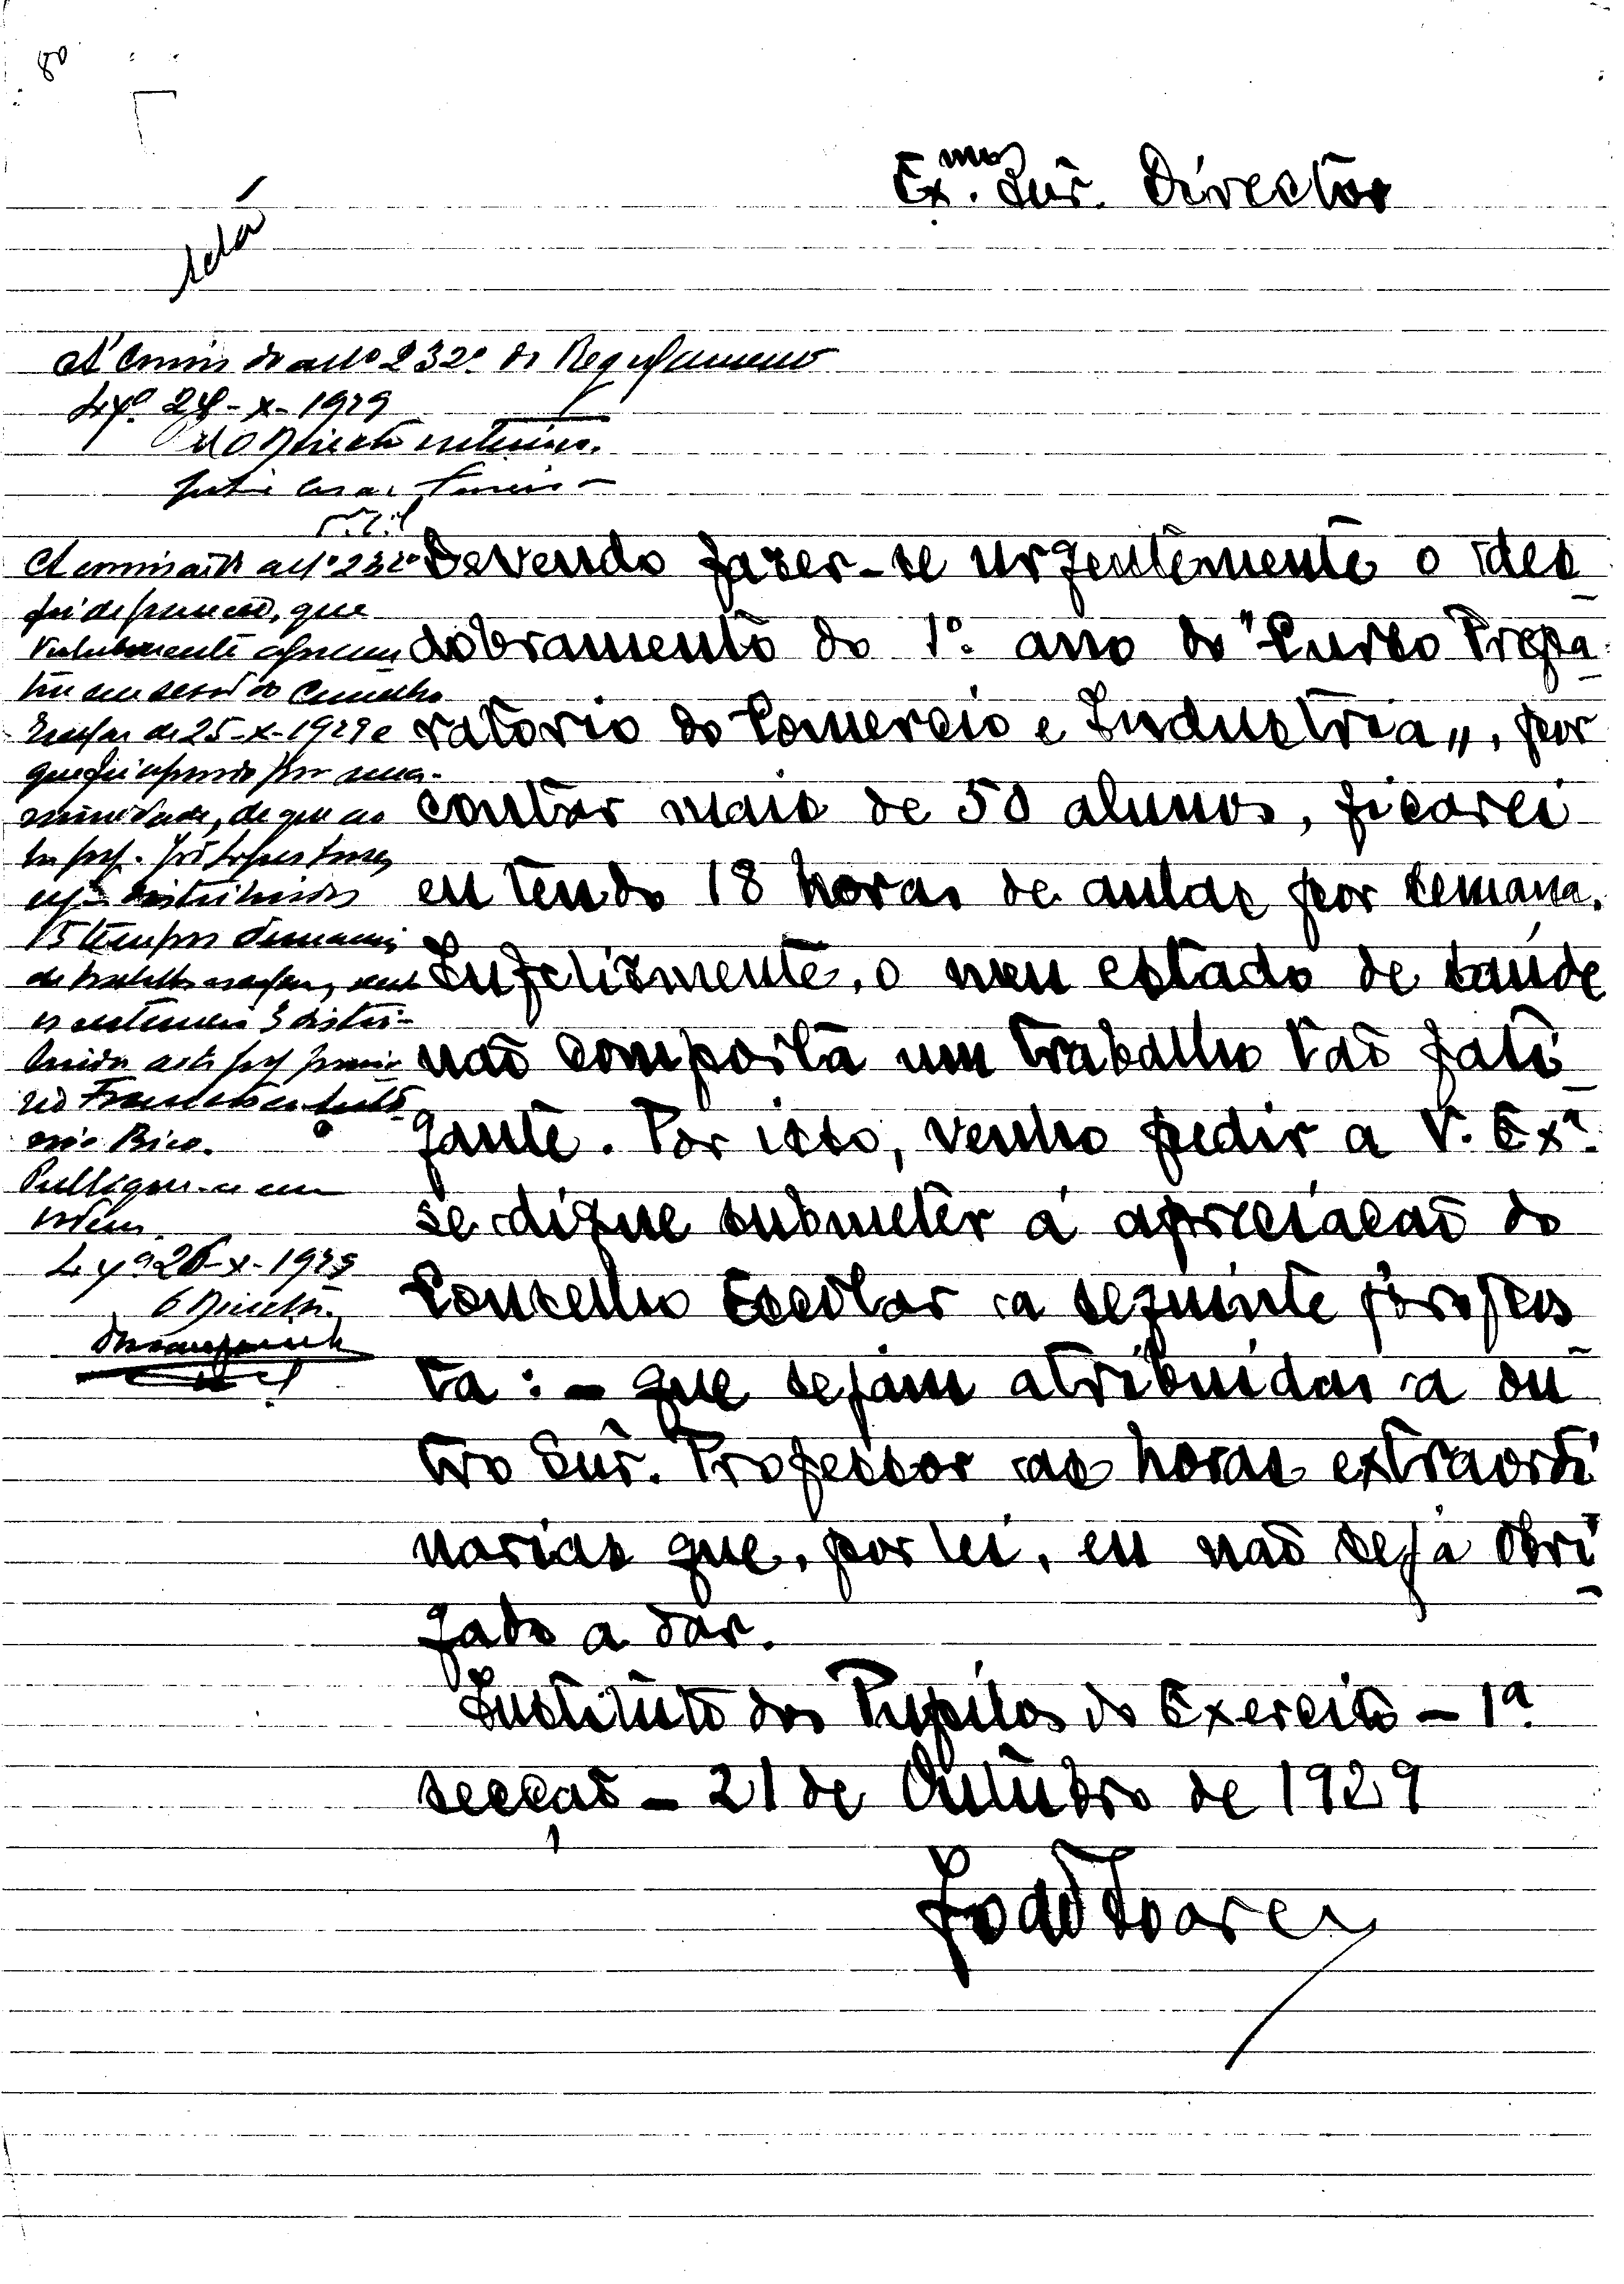 80
Ex.mo Snr. Director
A' Comis do artº 232º do Regulamento
Lxª 24-X-1929
O Director interino.
A comissão do artº 232º
foi de parecer, que
verbalmente apresen
tou em sessão do Conselho
Escolar de 25-X-1929 e
que foi aprovado por una-
nimidade, de que ao
Snr prof. João Lopes Soares
sejam distribuidos
15 tempos semanais
de trabalho escolar, sendo
os restantes 3 distri-
buidos ao prof provi
rio Francisco Anto
nio Rico.
Publique-se em
ordem.
Lxª 26-X-1929
O Director.
Devendo fazer-se urgentemente o des
dobramento do 1º. ano do "Curso Prepa-
ratorio do Comercio e Industria", por
contar mais de 50 alunos, ficarei
eu tendo 18 horas de aulas por semana.
Infelizmente, o meu estado de saúde
não comporta um trabalho tão fati-
gante. Por isso, venho pedir a V. Exª.
se digne submeter á apreciacão do
Conselho Escolar a seguinte propos
ta: - que sejam atribuidas a ou-
tro Snr. Professor as horas extraordi
narias que, por lei, eu não seja obri-
gado a dar.
Instituto dos Pupilos do Exercito - 1ª.
secção - 21 de Outubro de 1929
João Soares